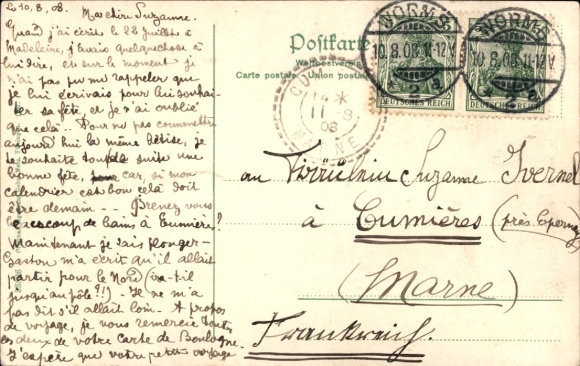 Le 10, 8, 08. Ma chère Suzanne.
Quand j'ai écrit le 28 juillet à
Madeleine, j'avais quelquechose à
lui dire, et sur le moment je
n'ai pas pu me rappeler que
je lui écrivais pour lui souhai-
ter sa fête, et je n'ai oublié
que cela. Pour ne pas commettre
aujourd'hui la même bêtise, je
te souhaite tout de suite une
bonne fête, car, si mon
calendrier est bon cela doit
être demain -- Prenez vous
beaucoup de bains à Cumières?
Maintenant je sais plonger -
Gaston m'a écrit qu'il allait
partir pour le Nord (ira-t-il
jusqu'au pôle?!) - Il ne m'a
pas dit s'il allait loin - A propos
de voyage, je vous remercie toutes
les deux de votre carte de Boulogne.
J'espère que votre petit voyage
Postkarte
Weltpostverein
Carte postale - Union postale
WORMS
10.8.08.11-12V.
2 a
DEUTSCHES REICH
WORMS
10.8.08.11-12V.
a
DEUTSCHES REICH
14 *
11
08
an Fräulein Suzanne Ivernel
à Cumières (près Epernay)
(Marne)
Frankreich.